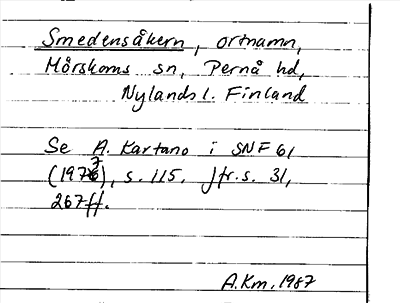 Smedensåkern, ortnamn,
Mörskoms sn, Pernå hd,
Nylands l. Finland
Se A. Kartano i SNF 61
(1977), s. 115, jfr. s. 31,
267 ff.
A.Km, 1987